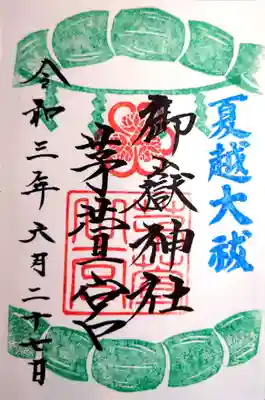 夏越大祓
御嶽神社
茅萱宮
令和三年六月二十七日